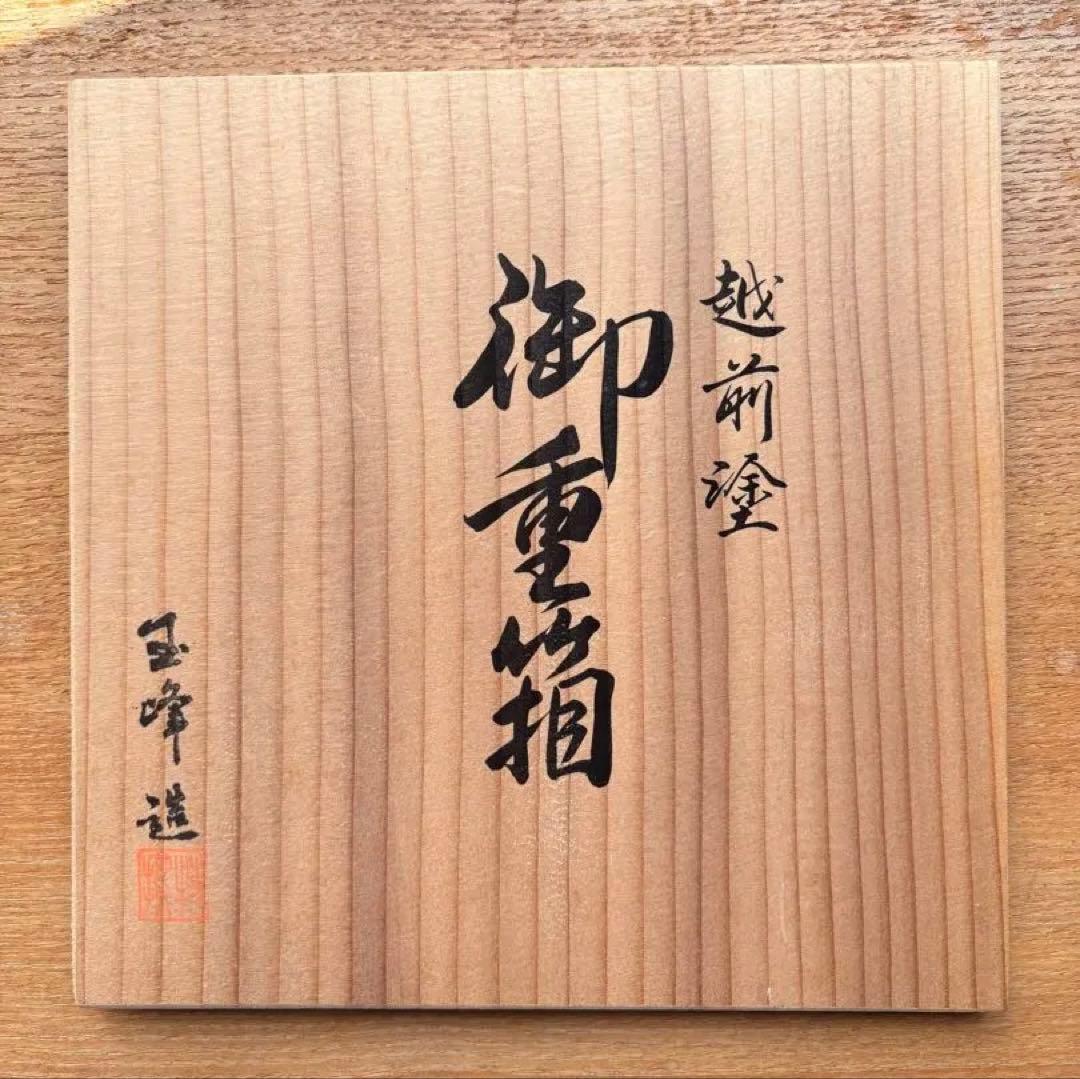 越前塗
御重箱
玉峰造